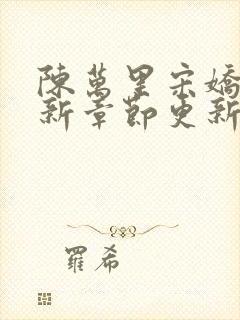 陳萬里宋嬌
新章節更新
羅希